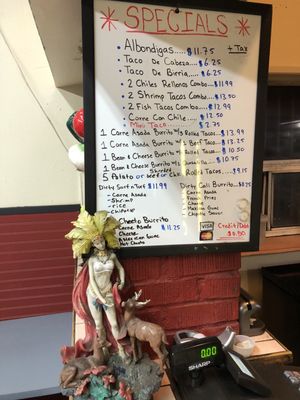 *SPECIALS*
• Albondigas..... $11.75 + Tax
• Taco De Cabeza... $6.25
• Taco De Birria... $6.25
• 2 Chiles Rellenos Combo $11.99
• 2 Shrimp Tacos Combo $13.50
• 2 Fish Tacos Combo $12.99
• Carne Con Chile $12.50
• Mini Taco $2.75
1 Carne Asada Burrito Rolled Tacos $13.99
1 Carne Asada Burrito Beef Taco $13.25
1 Bean & Cheese Burrito Rolled Tacos $10.50
1 Bean & Cheese Burrito $10.75
5 Potato or Beef or Shredded Rolled Tacos $9.15
Dirty Surf n Turf $11.99
- Carne Asada
- Shrimp
- rice
- Chipotle
Dirty Cali Burrito $11.25
- Carne Asada
- French Fries
- Cheese
- Chipotle Sauce
Cheeto Burrito
Carne Asada $11.25
Cheese
Hot Cheeto
VISA
Credit/Debit
$0.50
0.00
SHARP